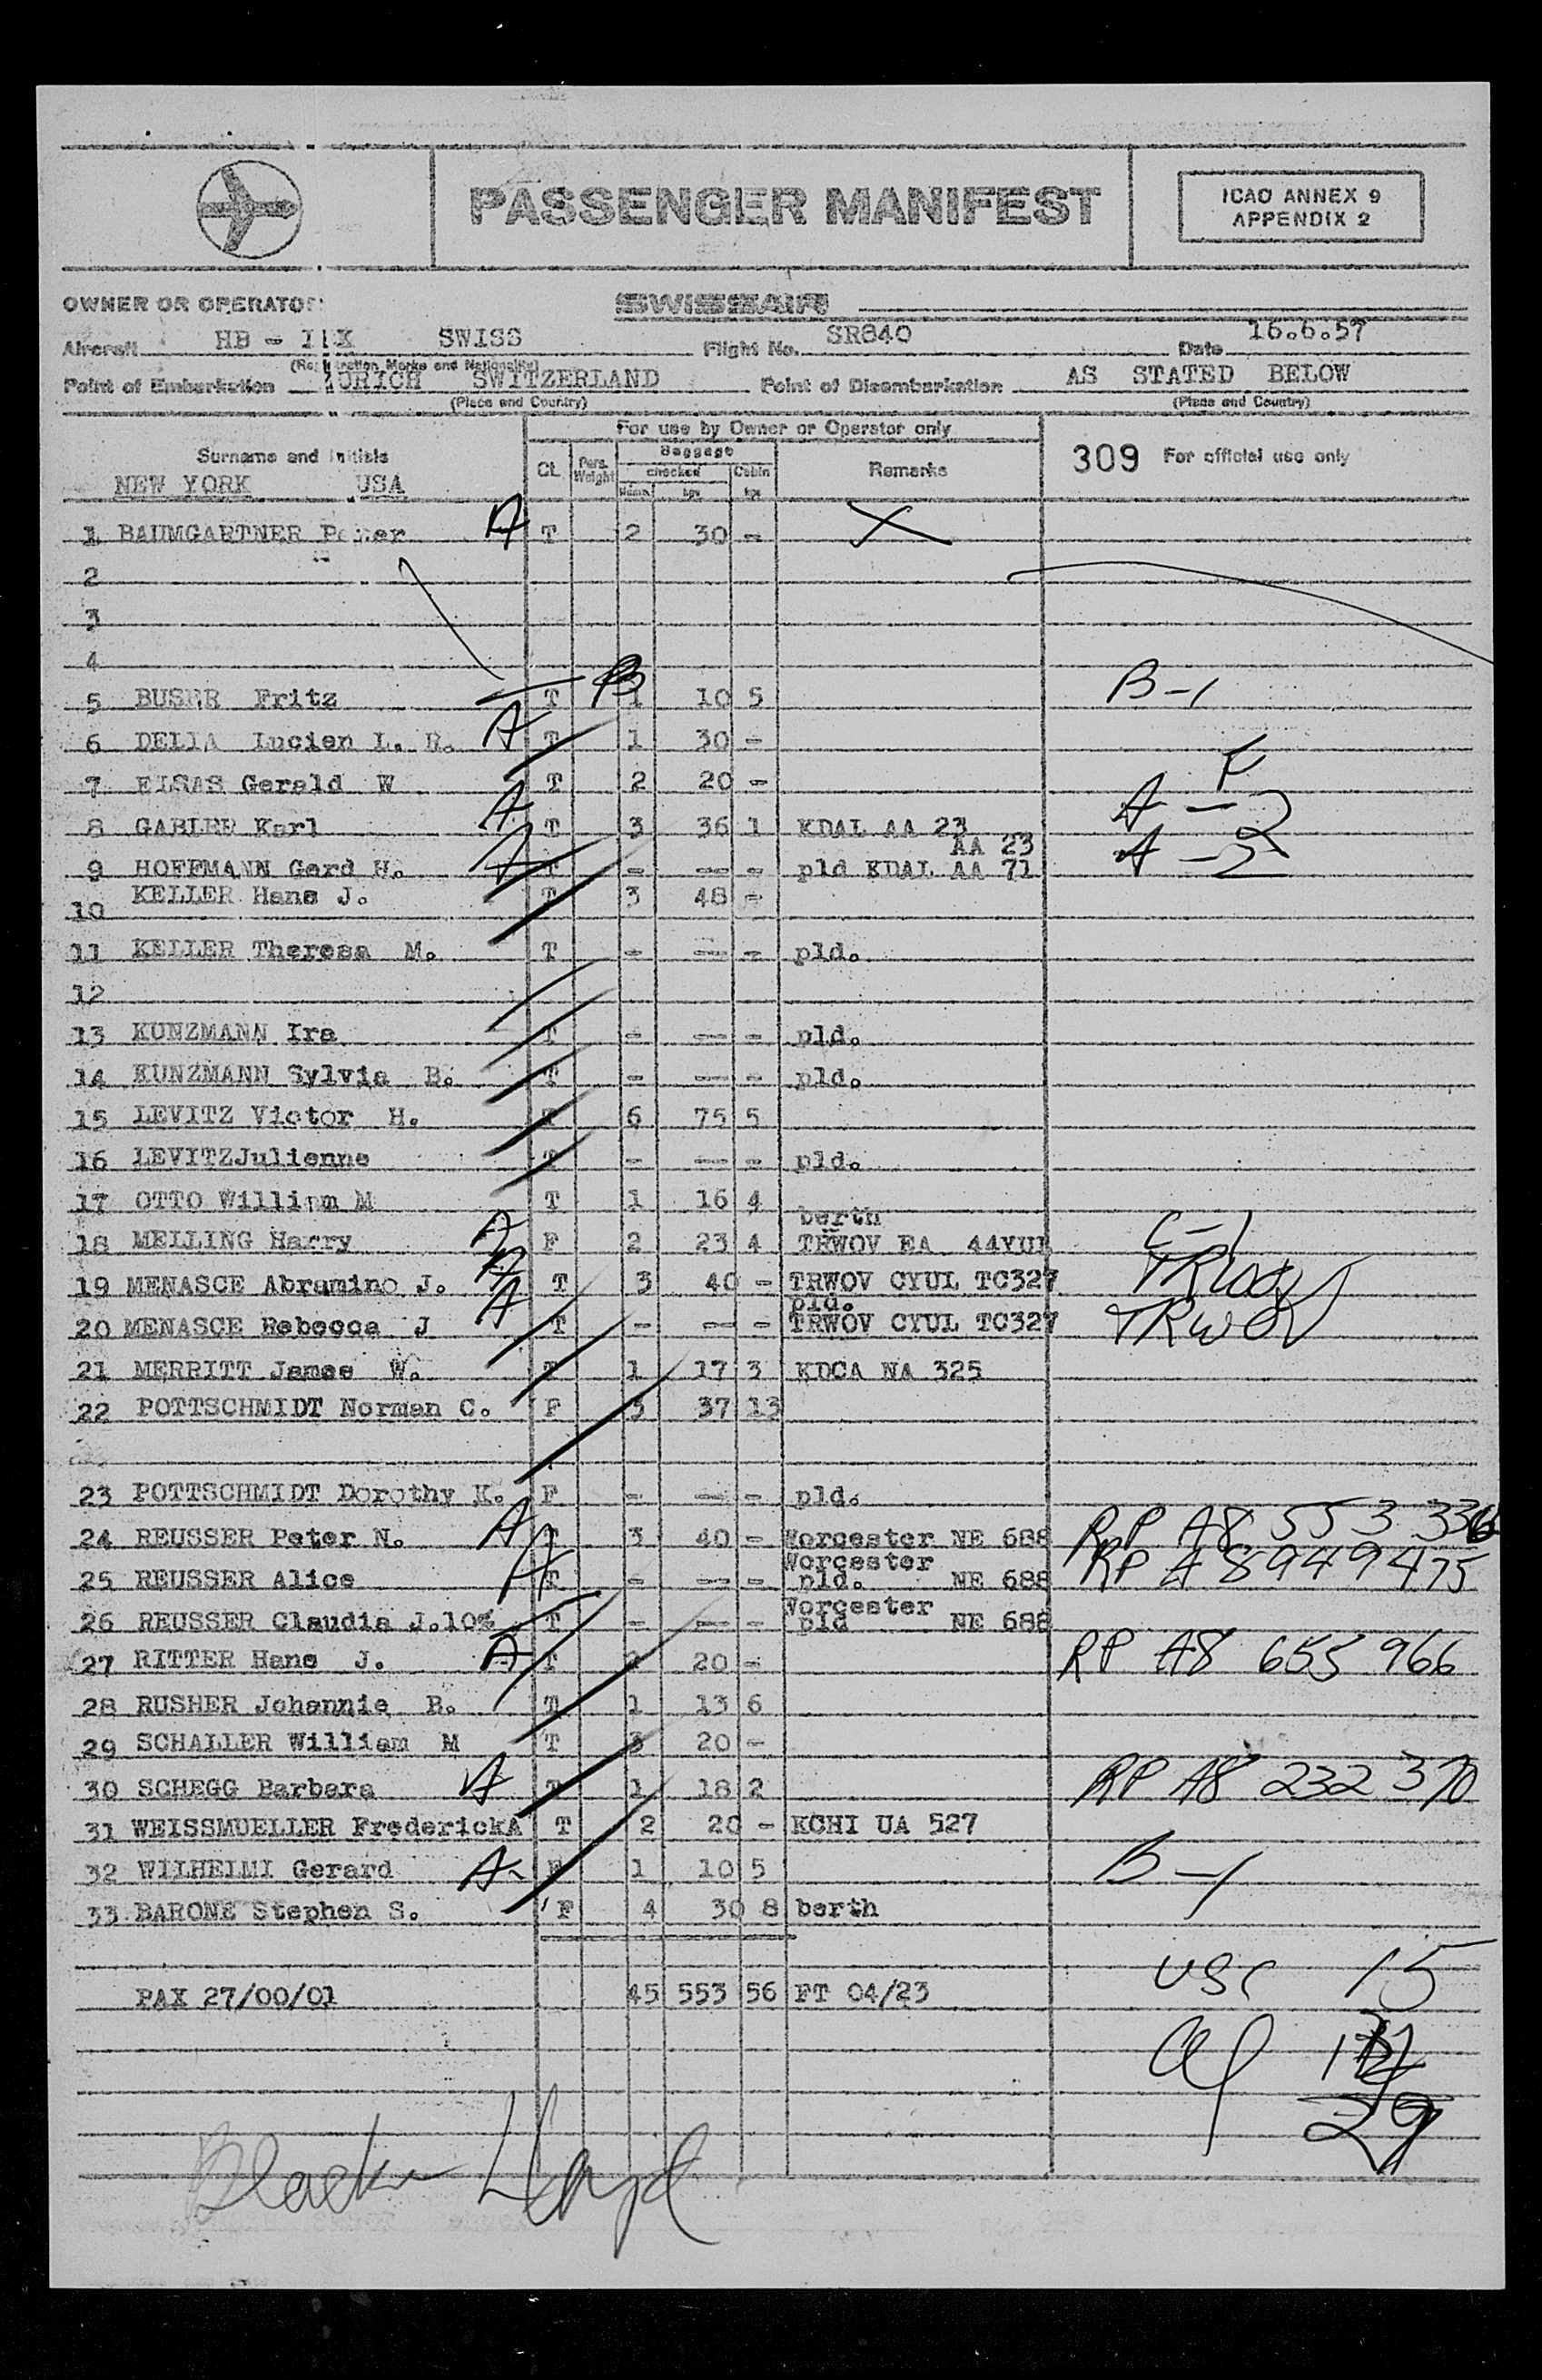 PASSENGER MANIFEST
ICAO ANNEX 9
APPENDIX 2
OWNER OR OPERATOR SWISSAIR
Aircraft HB - SWISS Flight No. SR840 Date 16.6.57
(Registration Marks and Nationality)
Point of Embarkation ZURICH SWITZERLAND Point of Disembarkation AS STATED BELOW
(Place and Country) (Place and Country)
For use by Owner or Operator only
Surname and Initials CL Pers. Weight Baggage checked Cabin Remarks 309 For official use only
Num. kgs kgs
NEW YORK USA
1 BAUMGARTNER Peter A T 2 30 - X
2
3
4
5 BUSER Fritz T B 1 10 5 B-1
6 DELIA Lucien L. R. A T 1 30 -
7 ELSAS Gerald W T 2 20 - F
8 GABLER Karl A T 3 36 1 KDAL AA 23 A-2
AA 23
9 HOFFMANN Gerd H. A T - -- - pld KDAL AA 71 A-2
10 KELLER Hans J. T 3 48 -
11 KELLER Theresa M. T - -- - pld.
12
13 KUNZMANN Ira T - -- - pld.
14 KUNZMANN Sylvia B. T - -- - pld.
15 LEVITZ Victor H. T 6 75 5
16 LEVITZJulienne T - -- - pld.
17 OTTO William M T 1 16 4
berth
18 MEILING Harry A F 2 23 4 TRWOV EA 44YUL C-1
19 MENASCE Abramino J. A T 3 40 - TRWOV CYUL TC327 TRWOV
pld.
20 MENASCE Rebecca J A T - -- - TRWOV CYUL TC327 TRWOV
21 MERRITT James W. T 1 17 3 KDCA NA 325
22 POTTSCHMIDT Norman C. F 3 37 13
23 POTTSCHMIDT Dorothy K. F - -- - pld.
24 REUSSER Peter N. A T 3 40 - Worcester NE 688 RP A8 553 336
Worcester
25 REUSSER Alice A T - -- - pld. NE 688 RP A 8949475
Worcester
26 REUSSER Claudia J.10% T - -- - pld NE 688
27 RITTER Hans J. A T 20 - RP A8 653 966
28 RUSHER Johannie B. T 1 13 6
29 SCHALLER William M T 3 20 -
30 SCHEGG Barbara A T 1 18 2 RP A8 232 370
31 WEISSMUELLER FrederickA T 2 20 - KCHI UA 527
32 WILHELMI Gerard A F 1 10 5 B-1
33 BARONE Stephen S. F 4 30 8 berth
USC 15
PAX 27/00/01 45 553 56 FT 04/23
29